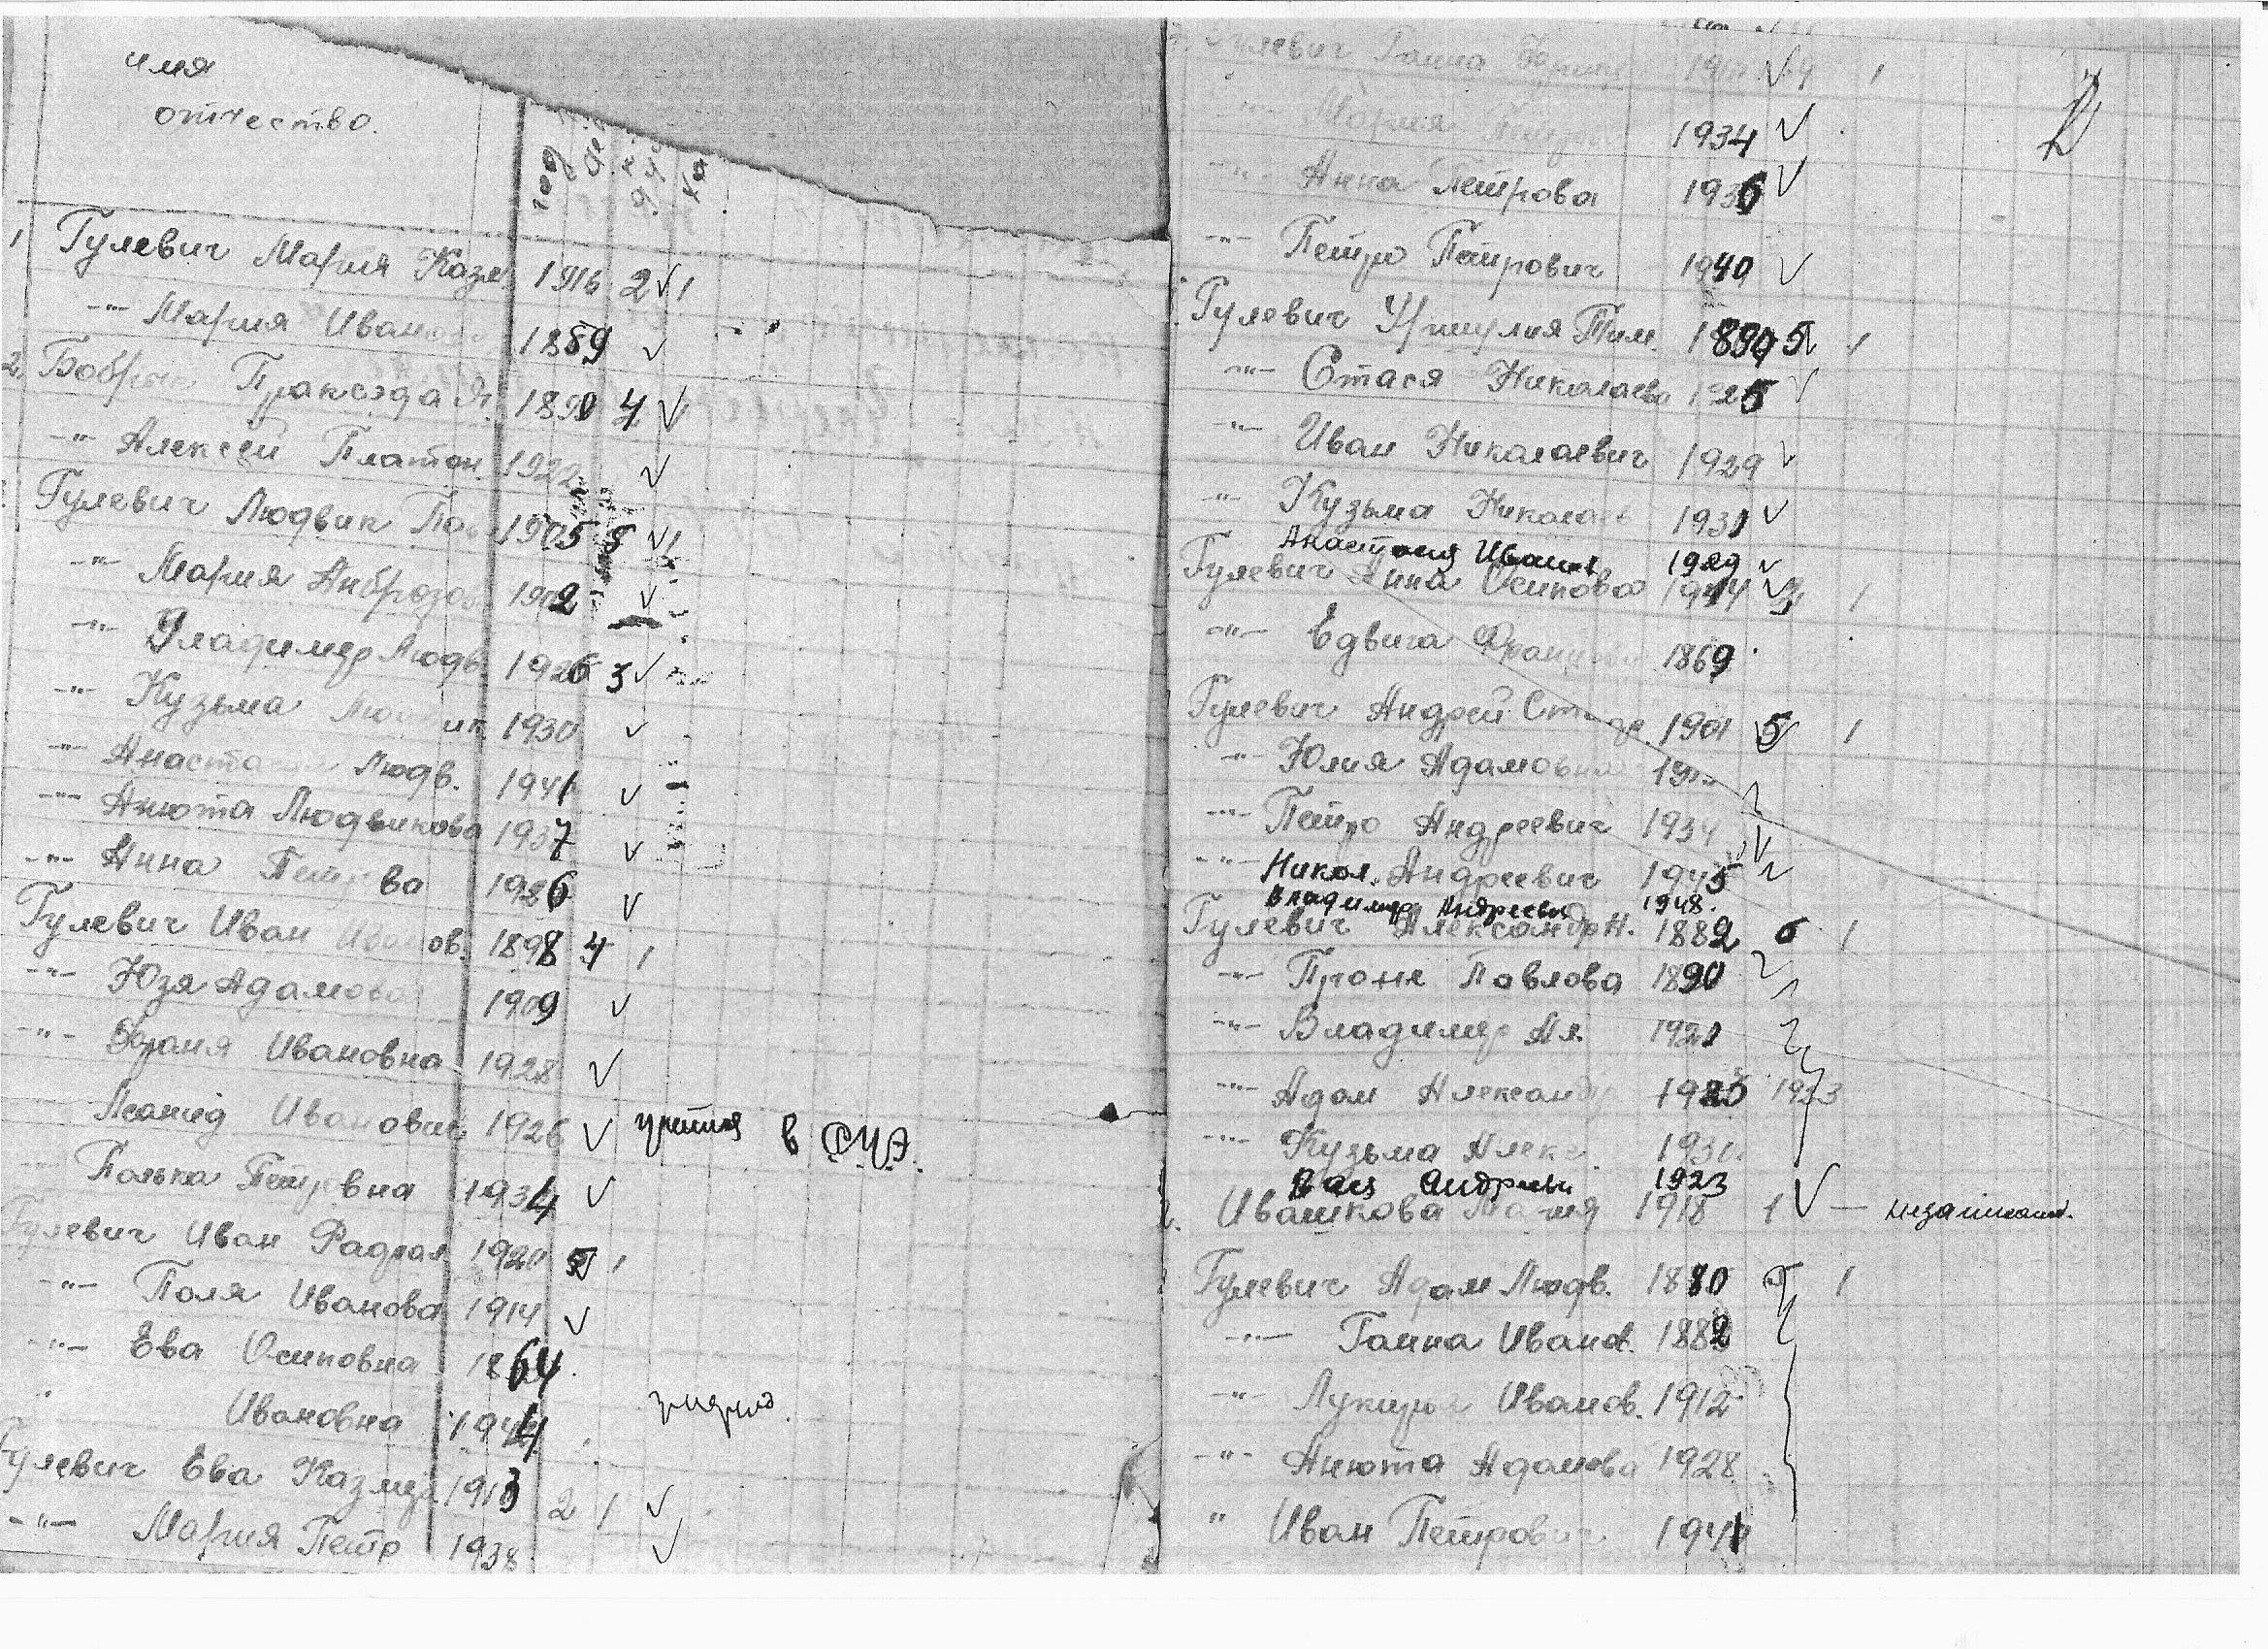 имя
отчество.
год
1 Гулевич Мария Казм. 1916 2 √ 1
-"- Мария Иванов 1859 √
2. Бобр Праксэда Я. 1890 4 √
-"- Алексей Платон. 1922 √
Гулевич Людвик Пав 1905 8 √ 1
-"- Мария Амброзов 1902 √
-"- Владимер Людв. 1926 3 √
-"- Кузьма ик. 1930 √
-"- Анаста Людв. 1941 √
-"- Анюта Людвикова 1937 √
-"- Анна Петрова 1926 √
Гулевич Иван Иванов. 1898 4 1
-"- Юзя Адамова 1909 √
-"- Франя Ивановна 1928 √
Леонид Иванович 1926 √ в
-"- Полька Петровна 1934 √
Гулевич Иван 1920 5 √ 1
-"- Поля Иванова 1914 √
-"- Ева Осиповна 1864
Ивановна 1944
Гулевич Ева Казмер 1913 2 1 √
-"- Мария Петр 1938 √
Гулевич Ганна 1
-"- Мария 1934 √
-"- Анна Петрова 1936 √
-"- Петро Петрович 1940 √
Гулевич Уршулия Тим. 1890 5 √ 1
-"- Стася Николаева 1925 √
-"- Иван Николаевич 1929 √
-"- Кузьма Николаев 1931 √
Анастасия Иванов 1929 √
Гулевич Анна Осипова 1914 √ 3 1
-"- Едвига Францевн 1869
Гулевич Андрей 1901 5 √ 1
-"- Юлия Адамовна
-"- Петро Андреевич 1934 √
-"- Никол. Андреевич 1945 √
Владимир Андреевич 1948.
Гулевич Александр Н. 1882 6 1
-"- Проня Павлова 1890
-"- Владимер Ал. 1921
-"- Адам Александр 1923 1923
-"- Кузьма Алекс. 1931
Андреев 1923
Ивашкова Мария 1918 1 √ —
Гулевич Адам Людв. 1880 5 1
-"- Ганна Иванов. 1882
-"- Лукерья Иванов. 1912
-"- Анюта Адамова 1928
" Иван Петрович 1941